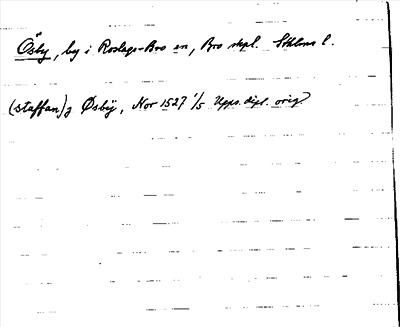 Ösby, by i Roslags-Bro sn, Bro skpl. Sthlms l.
(staffan) j Øsbÿ, Nor 1527 1/5 Upps. dipl. orig.